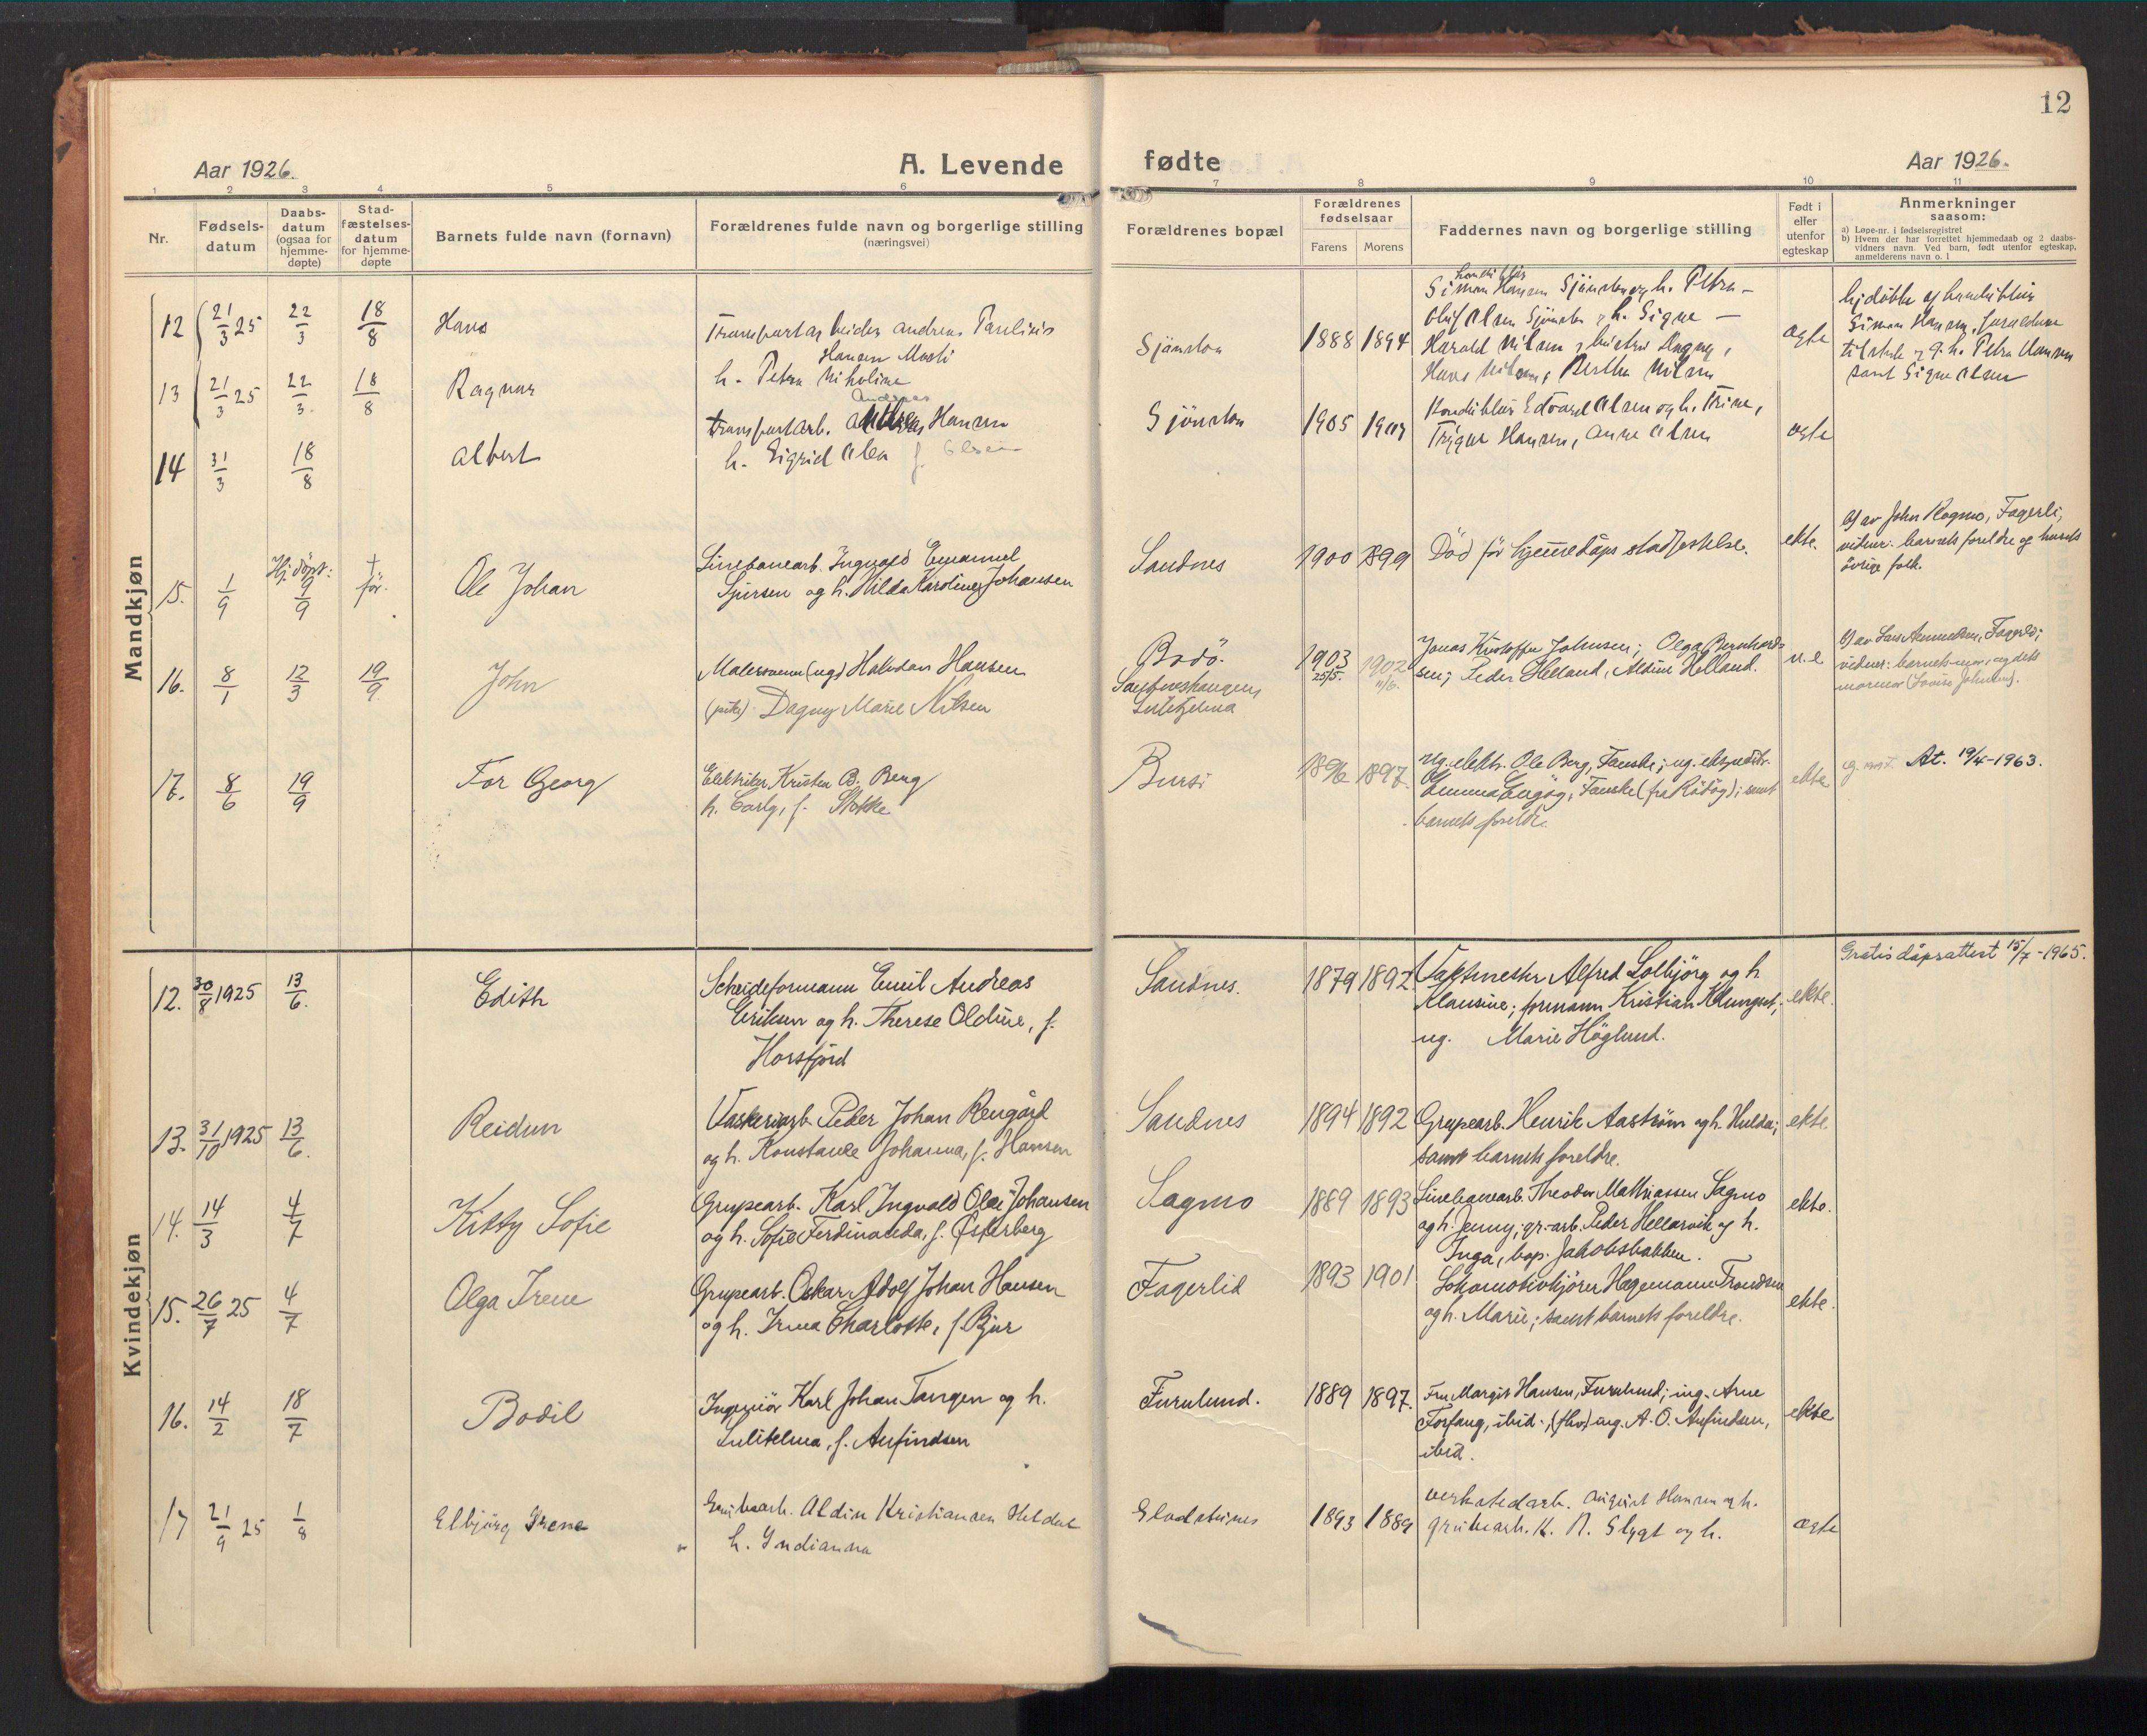 12
Aar 1926.
A. Levende
fødte
Aar 1926.
1 2 3 4 5 6 7 8 9 10 11
Nr.
Fødsels-
datum
Daabs-
datum
(ogsaa for
hjemme-
døpte)
Stad-
fæstelses-
datum
for hjemme-
døpte
Barnets fulde navn (fornavn)
Forældrenes fulde navn og borgerlige stilling
(næringsvei)
Forældrenes bopæl
Forældrenes
fødselsaar
Farens Morens
Faddernes navn og borgerlige stilling
Født i
eller
utenfor
egteskap
Anmerkninger
saasom:
a) Løpe-nr. i fødselsregistret
b) Hvem der har forrettet hjemmedaab og 2 daabs-
vidners navn. Ved barn, født utenfor egteskap,
anmelderens navn o. l
Mandkjøn
12 21/3 25 22/3 18/8 Hans
Transportarbeider Andreas Paulinus
Hansen Mosti
h. Petra Nikoline
Sjønstaa 1888 1894
Simon Hansen Sjønstaa og h. Petra -
Oluf Olsen Sjønstaa og h. Signe -
Harald Nilsen og hustru Dagny,
Hans Nilsen, Bertha Nilsen
ægte
Simon Hansen, foreldrene
tilstede og h. Petra Hansen
samt Signe Olsen
13 21/3 25 22/3. 18/8 Ragnar
14 31/3 18/8 Albert
Andreas
transportarb. Hansen
h. Sigrid Olsen f. Olsen
Sjönstaa 1905
Konduktör Edvard Olsen og h. Trine,
Trygve Hansen, Anne Olsen
ægte
15. 1/9 Hj. döpt: 9/9 † før. Ole Johan
Linebanearb. Ingvald Emanuel
Sjursen og h. Hilda Karoline f. Johansen
Sandnes 1900 1899
Död för hjemmedåps stadfestelse.
ekte.
b) av John Rognmo, Fagerli,
vidner: barnets foreldre og husets
övrige folk.
16. 8/1 12/3 19/9. John
Malersvenn (ug) Halvdan Hansen
(pike) Dagny Marie Nilsen
Bodö.
Sandneshaugen,
Sulitjelma
1903 25/5. 1902 11/6.
Jonas Kristoffer Johnsen; Olga Bernhard-
sen; Peder Helland, Aldine Helland.
u.e
vidner: barnets mor, og dets
mormor (Lovise Johnsen).
17. 8/6 19/9 Tor Georg
Elektriker Kristen B. Berg
h. Borly, f. Stokke
Bursi 1896 1897.
Ug. elektr. Ole Berg, Fauske; ug. ekspeditr.
Emma Engög, Fauske (fra Rödøy); samt
barnets foreldre.
ekte
At. 19/4-1963.
Kvindekjøn
12. 30/8 1925 13/6. Edith
Scheideformann Emil Andreas
Eriksen og h. Therese Oldine, f.
Horsfjord
Sandnes. 1879 1892
Vaktmester Alfred Solbjörg og h
Klausine; formann Kristian Klungset,
ug. Marie Höglund.
ekte.
Gratis dåpsattest 15/7-1965.
13. 31/10 1925 13/6. Reidun
Vaskeriarb. Peder Johan Rengård
og h. Konstanse Johanna, f. Hansen
Sandnes 1894 1892
Grupearb. Henrik Aaström og h. Hulda;
samt barnets foreldre.
ekte.
14. 14/3 4/7 Kitty Sofie
Grupearb. Karl Ingvald Olai Johansen
og h. Sofie Ferdinanda, f. Østerberg
Sagmo 1889 1893
Linebanearb. Theodor Mathiassen Sagmo
og h. Jenny; gr.-arb. Peder Hellarvik og h.
Inga, bop. Jakobsbakken.
ekte.
15. 26/7 25 4/7 Olga Irene
Grupearb. Oskar Adolf Johan Hansen
og h. Irma Charlotte, f. Bjur
Fagerlid 1893 1901
Lokomotivkjörer Hagemann Trondsen
og h. Marie; samt barnets foreldre.
ekte.
16. 14/2 18/7 Bodil
Ingeniör Karl Johan Tangen og h.
Sulitelma, f. Anfindsen
Furulund. 1889 1897.
Fru Margit Hansen, Furulund; ing. Arne
Forfang, ibid.; (fhv) ing. A. O. Anfindsen,
ibid.
ekte
17 21/9 25 1/8 Elbjörg Irene
Grubearb. Aldin Kristiansen
h. Indianna
Glastunes 1893 1889
verkstedarb. August Hansen og h.
grubearb. K. N. Slygt og h.
ægte